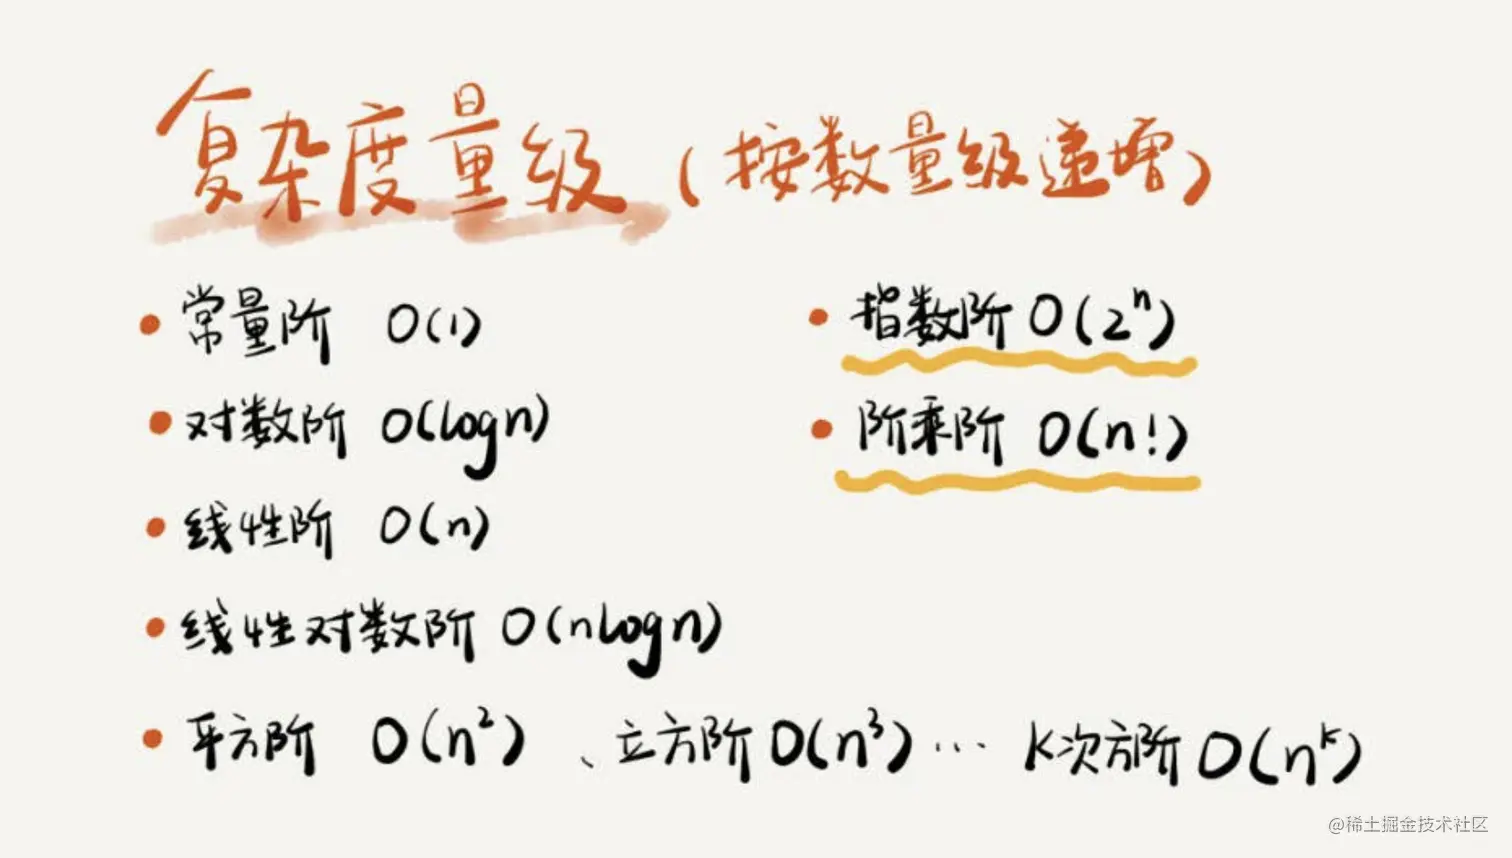 复杂度量级（按数量级递增）
• 常量阶 O(1)
• 对数阶 O(logn)
• 线性阶 O(n)
• 线性对数阶 O(nlogn)
• 平方阶 O(n²)、立方阶 O(n³)… K次方阶 O(nᵏ)
• 指数阶 O(2ⁿ)
• 阶乘阶 O(n!)
@稀土掘金技术社区